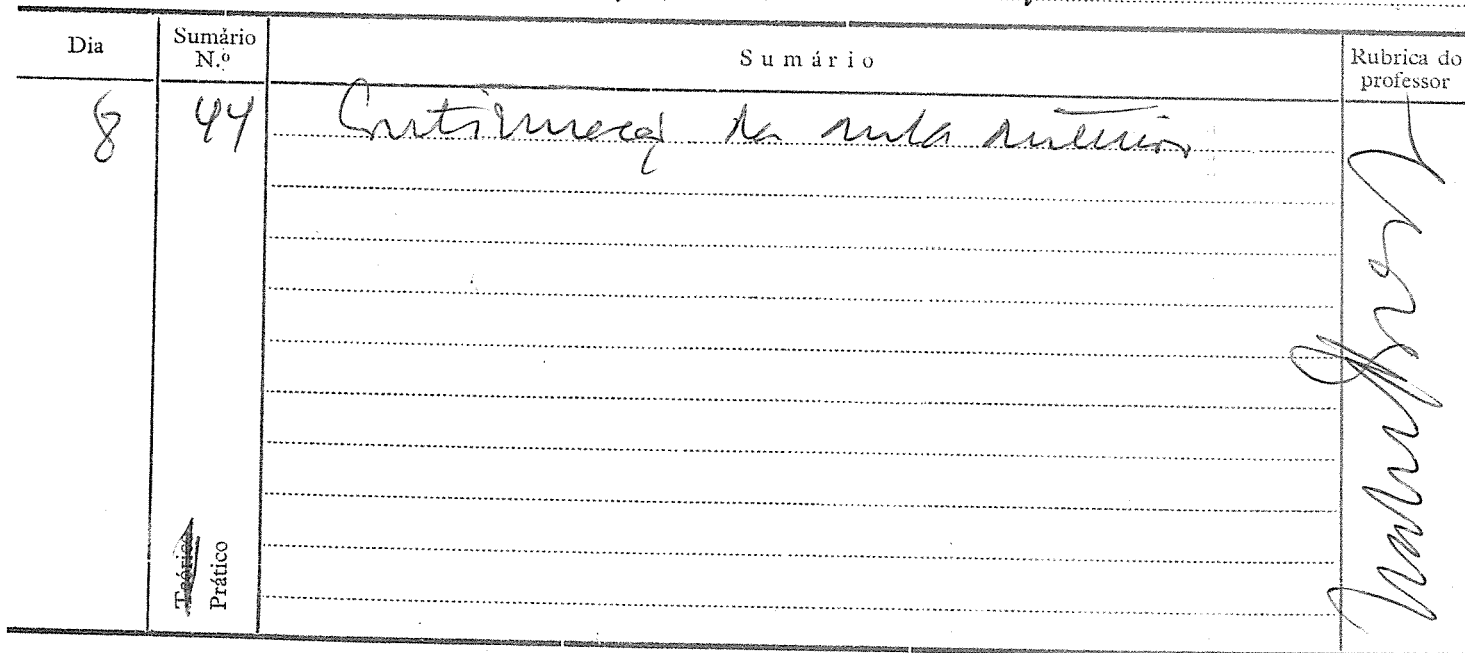 Dia
Sumário
N.º
Sumário
Rubrica do
professor
8
44
Continuação da aula anterior
Teórico
Prático